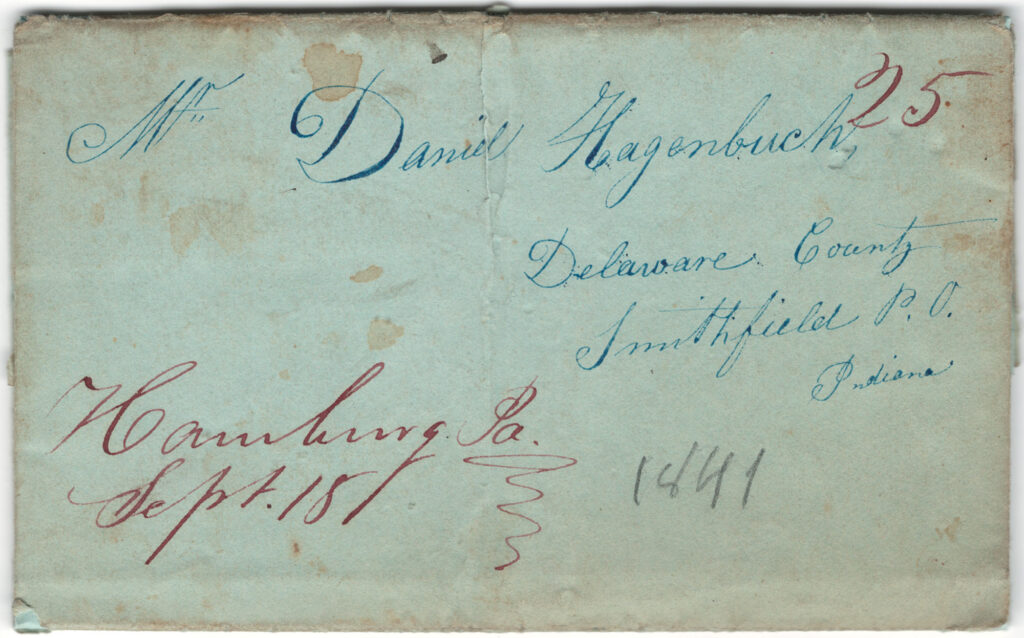 Mr. Daniel Hagenbuch,
25
Delaware County
Smithfield P. O.
Indiana
Hamburg Pa.
Sept. 18
1841